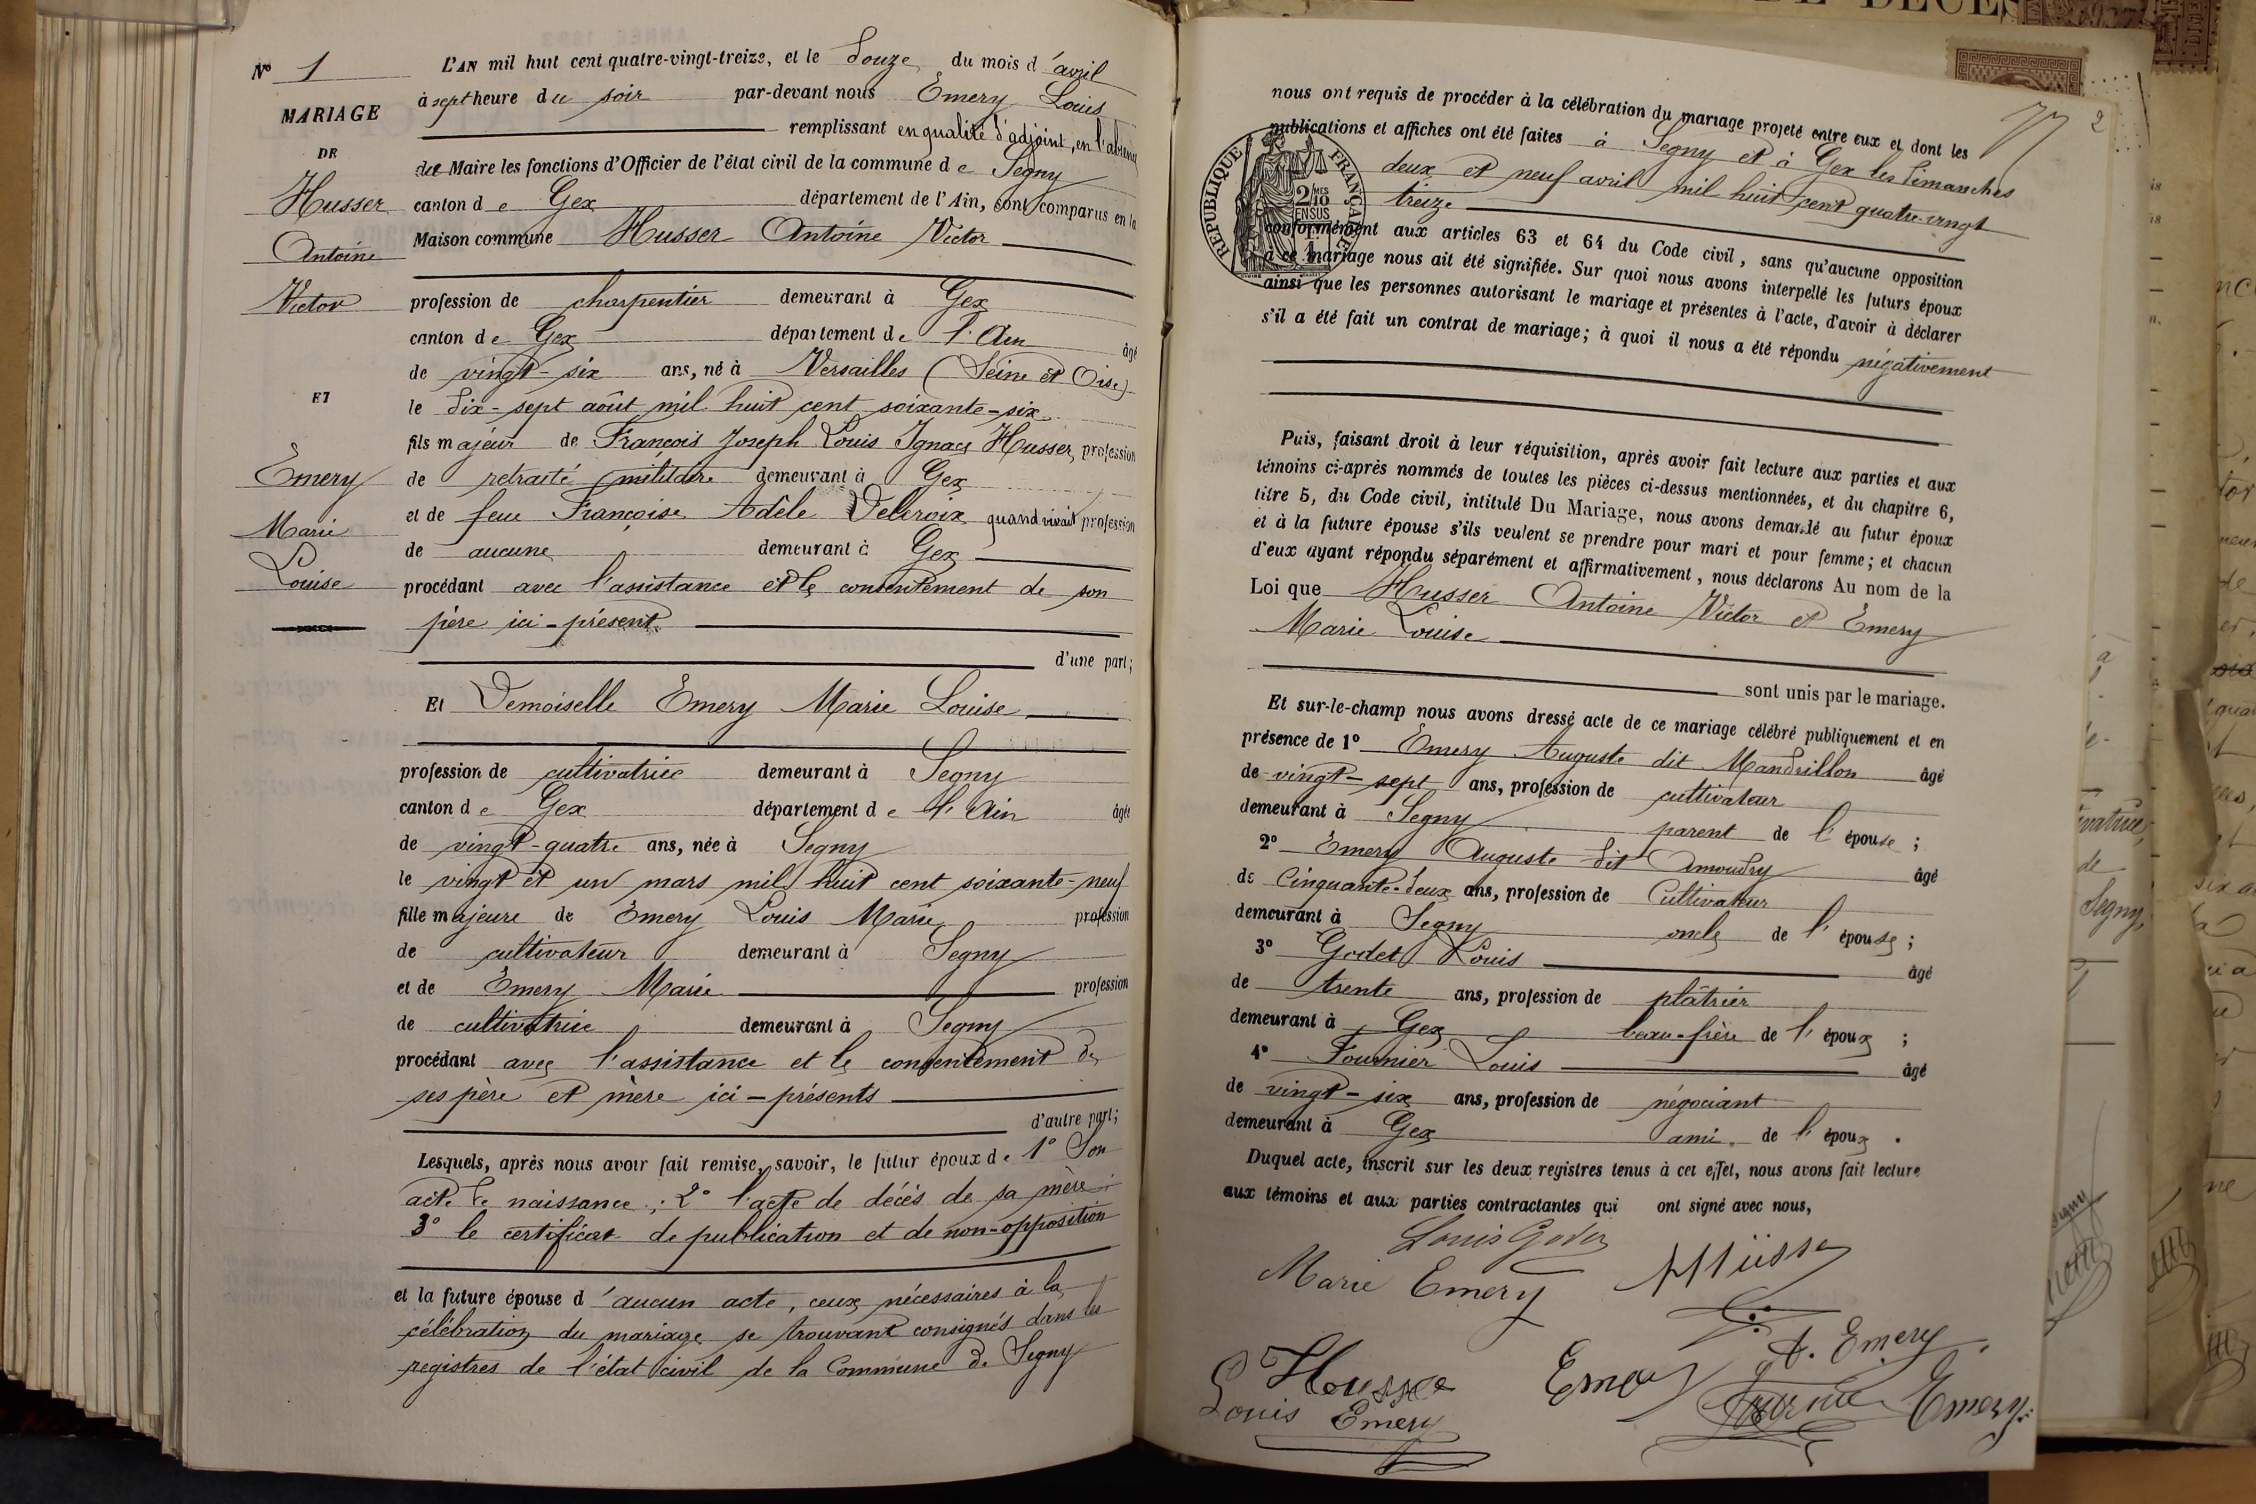 N° 1
MARIAGE
DE
Husser
Antoine
Victor
ET
Emery
Marie
Louise
L'AN mil huit cent quatre-vingt-treize, et le douze du mois d'avril
à sept heure du soir par-devant nous Emery Louis
remplissant en qualité d'adjoint, en l'absence
du Maire les fonctions d'Officier de l'état civil de la commune de Segny
canton de Gex département de l'Ain, sont comparus en la
Maison commune Husser Antoine Victor
profession de charpentier demeurant à Gex
canton de Gex département de l'Ain âgé
de vingt-six ans, né à Versailles (Seine et Oise)
le dix-sept août mil huit cent soixante-six
fils majeur de François Joseph Louis Ignace Husser, profession
de retraité militaire demeurant à Gex
et de feue Françoise Adèle Delcroix quand vivait profession
de aucune demeurant à Gex
procédant avec l'assistance et le consentement de son
père ici-présent
d'une part;
Et Demoiselle Emery Marie Louise
profession de cultivatrice demeurant à Segny
canton de Gex département de l'Ain âgée
de vingt-quatre ans, née à Segny
le vingt et un mars mil huit cent soixante-neuf
fille majeure de Emery Louis Marie profession
de cultivateur demeurant à Segny
et de Emery Marie profession
de cultivatrice demeurant à Segny
procédant avec l'assistance et le consentement de
ses père et mère ici-présents
d'autre part;
Lesquels, après nous avoir fait remise, savoir, le futur époux de 1° Son
acte de naissance; 2° l'acte de décès de sa mère
3° le certificat de publication et de non-opposition
et la future épouse d'aucun acte, ceux nécessaires à la
célébration du mariage se trouvant consignés dans les
registres de l'état civil de la Commune de Segny
2
nous ont requis de procéder à la célébration du mariage projeté entre eux et dont les
publications et affiches ont été faites à Segny et à Gex les dimanches
deux et neuf avril mil huit cent quatre-vingt
treize
RÉPUBLIQUE FRANÇAISE
2/10 EN SUS
conformément aux articles 63 et 64 du Code civil, sans qu'aucune opposition
à ce mariage nous ait été signifiée. Sur quoi nous avons interpellé les futurs époux
ainsi que les personnes autorisant le mariage et présentes à l'acte, d'avoir à déclarer
s'il a été fait un contrat de mariage; à quoi il nous a été répondu négativement
Puis, faisant droit à leur réquisition, après avoir fait lecture aux parties et aux
témoins ci-après nommés de toutes les pièces ci-dessus mentionnées, et du chapitre 6,
titre 5, du Code civil, intitulé Du Mariage, nous avons demandé au futur époux
et à la future épouse s'ils veulent se prendre pour mari et pour femme; et chacun
d'eux ayant répondu séparément et affirmativement, nous déclarons Au nom de la
Loi que Husser Antoine Victor et Emery
Marie Louise
sont unis par le mariage.
Et sur-le-champ nous avons dressé acte de ce mariage célébré publiquement et en
présence de 1° Emery Auguste dit Mandrillon âgé
de vingt-sept ans, profession de cultivateur
demeurant à Segny parent de l'épouse;
2° Emery Auguste dit Amoudry âgé
de Cinquante-deux ans, profession de Cultivateur
demeurant à Segny oncle de l'épouse;
3° Godet Louis âgé
de trente ans, profession de plâtrier
demeurant à Gex beau-frère de l'époux;
4° Fournier Louis âgé
de vingt-six ans, profession de négociant
demeurant à Gex ami de l'époux.
Duquel acte, inscrit sur les deux registres tenus à cet effet, nous avons fait lecture
aux témoins et aux parties contractantes qui ont signé avec nous,
Louis Godet
Marie Emery
A. Emery
Emery
Louis Emery
Emery